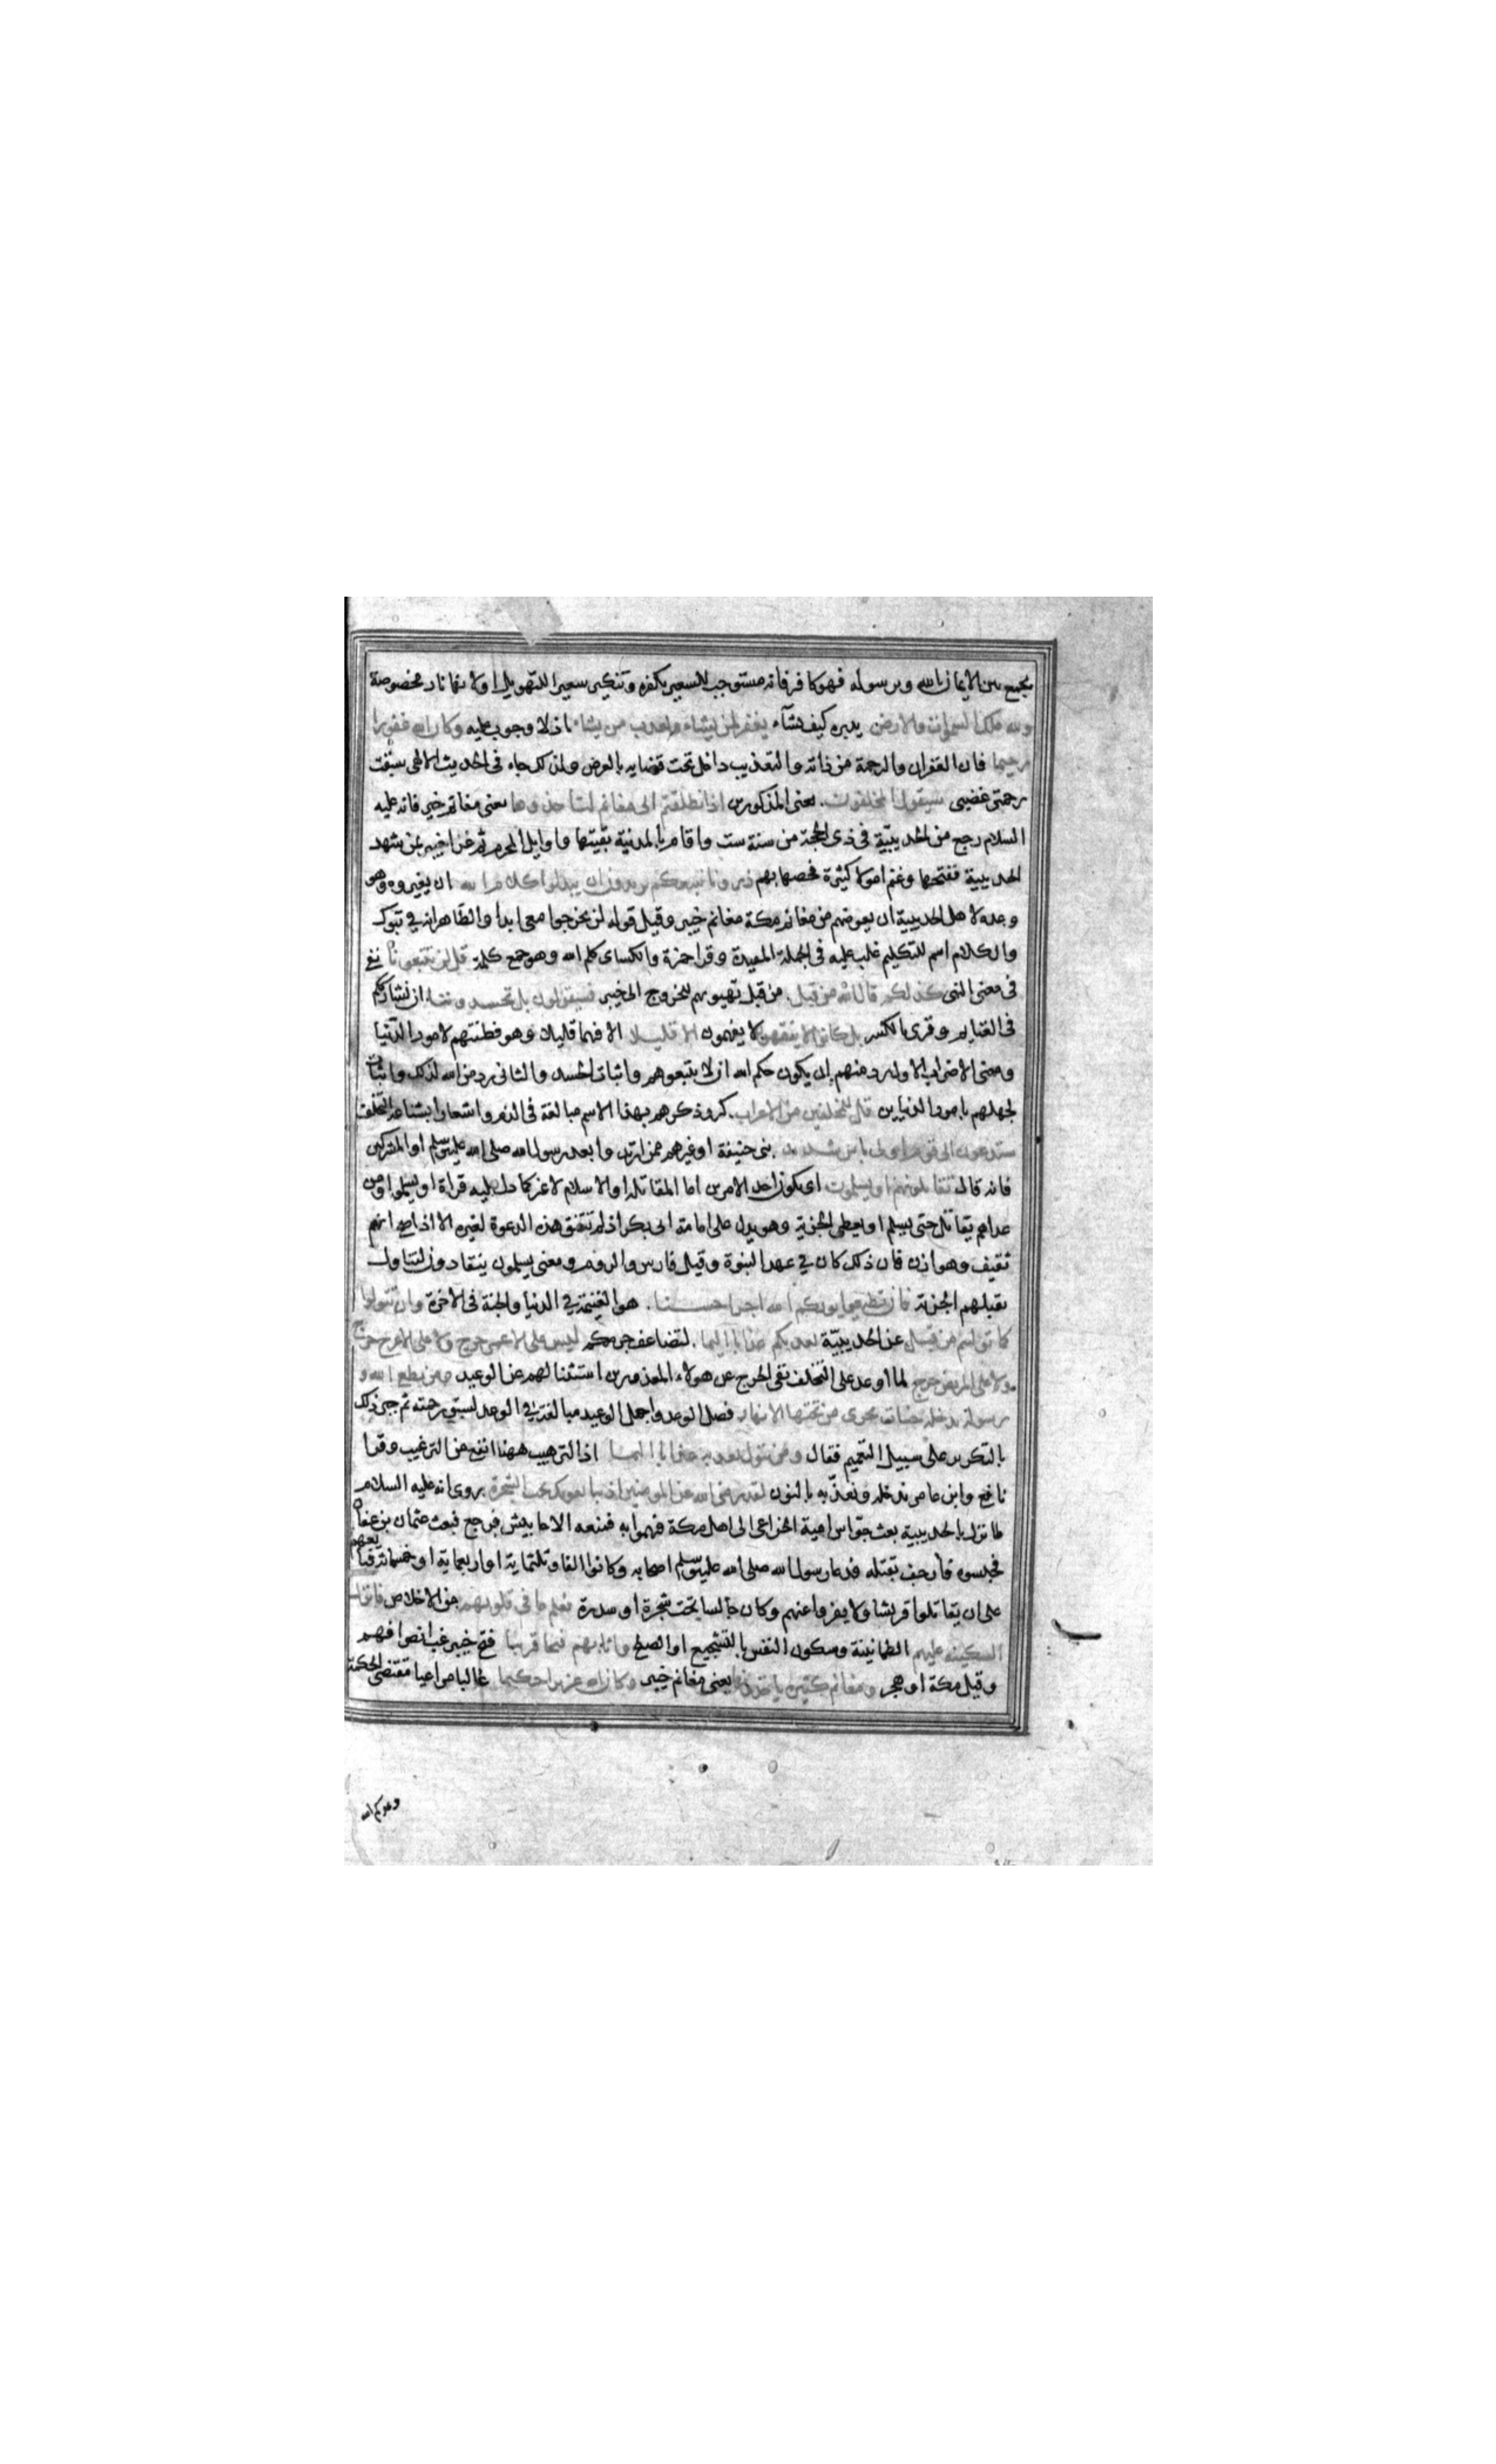 يجمع بين الايمان بالله وبرسوله فهو كافر فانه مستوجب للسعير بكفره وتنكير سعيرا للتهويل اولانها نار مخصوصة
ولله ملك السموات والارض يدبره كيف يشآء يغفر لمن يشاء ويعذب من يشاء اذ لا وجوب عليه وكان الله غفورا
رحيما فان الغفران والرحمة من ذاته والتعذيب داخل تحت قضايه بالعرض ولذلك جاء في الحديث الالهي سبقت
رحمتي غضبي سيقول المخلفون يعني المذكورين اذا انطلقتم الى مغانم لتاخذوها يعني مغانم خيبر فانه عليه
السلام رجع من الحديبيّة في ذي الحجة من سنة ست واقام بالمدنية بقيتها واوايل المحرم ثم غزا خيبر بمن شهد
الحديبية ففتحها وغنم اموالا كثيرة فخصها بهم ذرونا نتبعكم يريدون ان يبدلوا كلام الله ان يغيروه وهو
وعده لاهل الحديبية ان يعوضهم من مغانم مكة مغانم خيبر وقيل قوله لن يخرجوا معي ابدا والظاهر انه في تبوك
والكلام اسم للتكليم غلب عليه في الجملة المفيدة وقرا حمزة والكساى كلم الله وهو جمع كلمة قل لن تتبعونا نفي
في معنى النهي كذلكم قال الله من قبل من قبل تهيوهم للخروج الى خيبر فسيقولون بل تحسدوننا ان نشارككم
في الغنايم وقرئ بالكسر بل كانوا لا يفقهون لا يفهمون الا قليلا الا فهما قليلا وهو فطنتهم لامور الدنيا
ومعنى الاضراب الاول رد منهم ان يكون حكم الله ان لا يتبعوهم واثبات الحسد والثاني رد من الله لذلك واثبات
لجهلهم بامور الدين قل للمخلفين من الاعراب كرر ذكرهم بهذا الاسم مبالغة في الذم واشعارا بشناعة التخلف
ستدعون الى قوم اولى باس شديد بني حنيفة او غيرهم ممن ارتدوا بعد رسول الله صلى الله عليه وسلم او المشركين
فانه قال تقاتلونهم او يسلمون اي يكون احد الامرين اما المقاتلة او الاسلام لا غير كما دل عليه قراة او يسلموا ومن
عداهم يقاتل حتى يسلم او يعطي الجزية وهو يدل على امامة ابي بكر اذ لم تتفق هذه الدعوة لغيره الا اذا صح انهم
ثقيف وهوازن فان ذلك كان في عهد النبوة وقيل فارس والروم ومعنى يسلمون ينقادون لتناول
تقبلهم الجزية فان تطيعوا يوتكم الله اجرا حسنا هو الغنيمة في الدنيا والجنة في الاخرة وان تتولوا
كما توليتم من قبل عن الحديبيّة يعذبكم عذابا اليما لتضاعف جرمكم ليس على الاعمى حرج ولا على الاعرج حرج
ولا على المريض حرج لما اوعد على التخلف نفى الحرج عن هولاء المعذورين استثنا لهم عن الوعيد ومن يطع الله و
رسوله يدخله جنات تجرى من تحتها الانهار فصل الوعد واجمل الوعيد مبالغة في الوعد لسبق رحمته ثم جبر ذلك
بالتكرير على سبيل التعميم فقال ومن يتول يعذبه عذابا اليما اذ الترهيب ههنا انفع من الترغيب وقرا
نافع وابن عامر ندخله ونعذّبه بالنون لقد رضي الله عن المومنين اذ يبايعونك تحت الشجرة روي انه عليه السلام
لما نزل بالحديبية بعث جوّاس امية الخزاعي الى اهل مكة فهموا به فمنعه الاحابيش فرجع فبعث عثمان بن عفان
فحبسوه فارجف بقتله فدعا رسول الله صلى الله عليه وسلم اصحابه وكانوا الفا وثلثماية او اربعماية او خمسماية فبايعهم
على ان يقاتلوا قريشا ولا يفروا عنهم وكان جالسا تحت شجرة او سدرة فعلم ما في قلوبهم من الاخلاص فانزل
السكينه عليهم الطمانينة وسكون النفس بالتشجيع او الصلح واثابهم فتحا قريبا فتح خيبر غب انصرافهم
وقيل مكة او هجر ومغانم كثيره ياخذونها يعني مغانم خيبر وكان الله عزيزا حكيما غالبا مراعيا مقتضى الحكمة
وعدكم الله